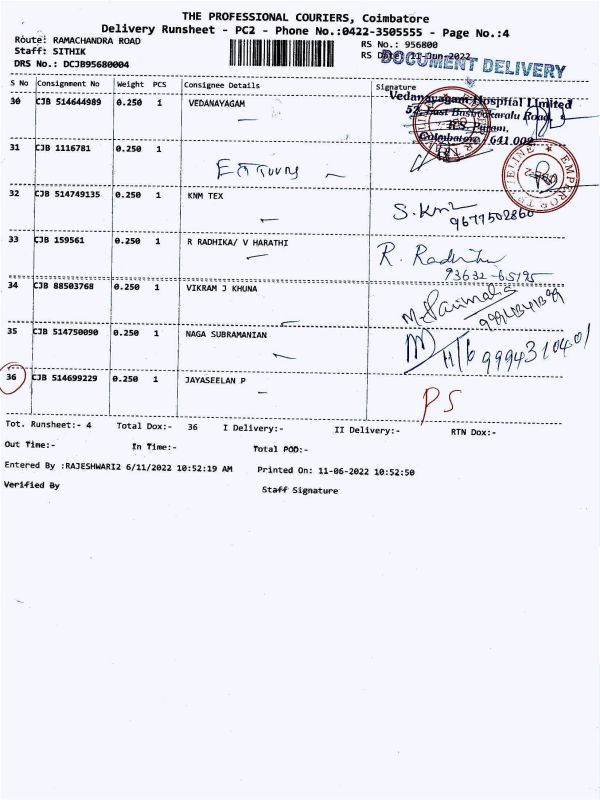 THE PROFESSIONAL COURIERS, Coimbatore
Delivery Runsheet - PC2 - Phone No.:0422-3505555 - Page No.:4
Route: RAMACHANDRA ROAD
RS No.: 956800
Staff: SITHIK
RS Date: 11-Jun-2022
DRS No.: DCJB95680004
DOCUMENT DELIVERY
S No Consignment No Weight PCS Consignee Details Signature
30 CJB 514644989 0.250 1 VEDANAYAGAM
Vedanayagam Hospital Limited
52, East Bashyakaralu Road,
R.S. Puram,
Coimbatore - 641 002
31 CJB 1116781 0.250 1
EMPEROR TRAVELINE
32 CJB 514749135 0.250 1 KNM TEX
9677502860
33 CJB 159561 0.250 1 R RADHIKA/ V HARATHI
R. Radhika
93632-65195
34 CJB 88503768 0.250 1 VIKRAM J KHUNA
35 CJB 514750090 0.250 1 NAGA SUBRAMANIAN
9994310401
36 CJB 514699229 0.250 1 JAYASEELAN P
PS
Tot. Runsheet:- 4 Total Dox:- 36 I Delivery:- II Delivery:- RTN Dox:-
Out Time:- In Time:- Total POD:-
Entered By :RAJESHWARI2 6/11/2022 10:52:19 AM Printed On: 11-06-2022 10:52:50
Verified By Staff Signature